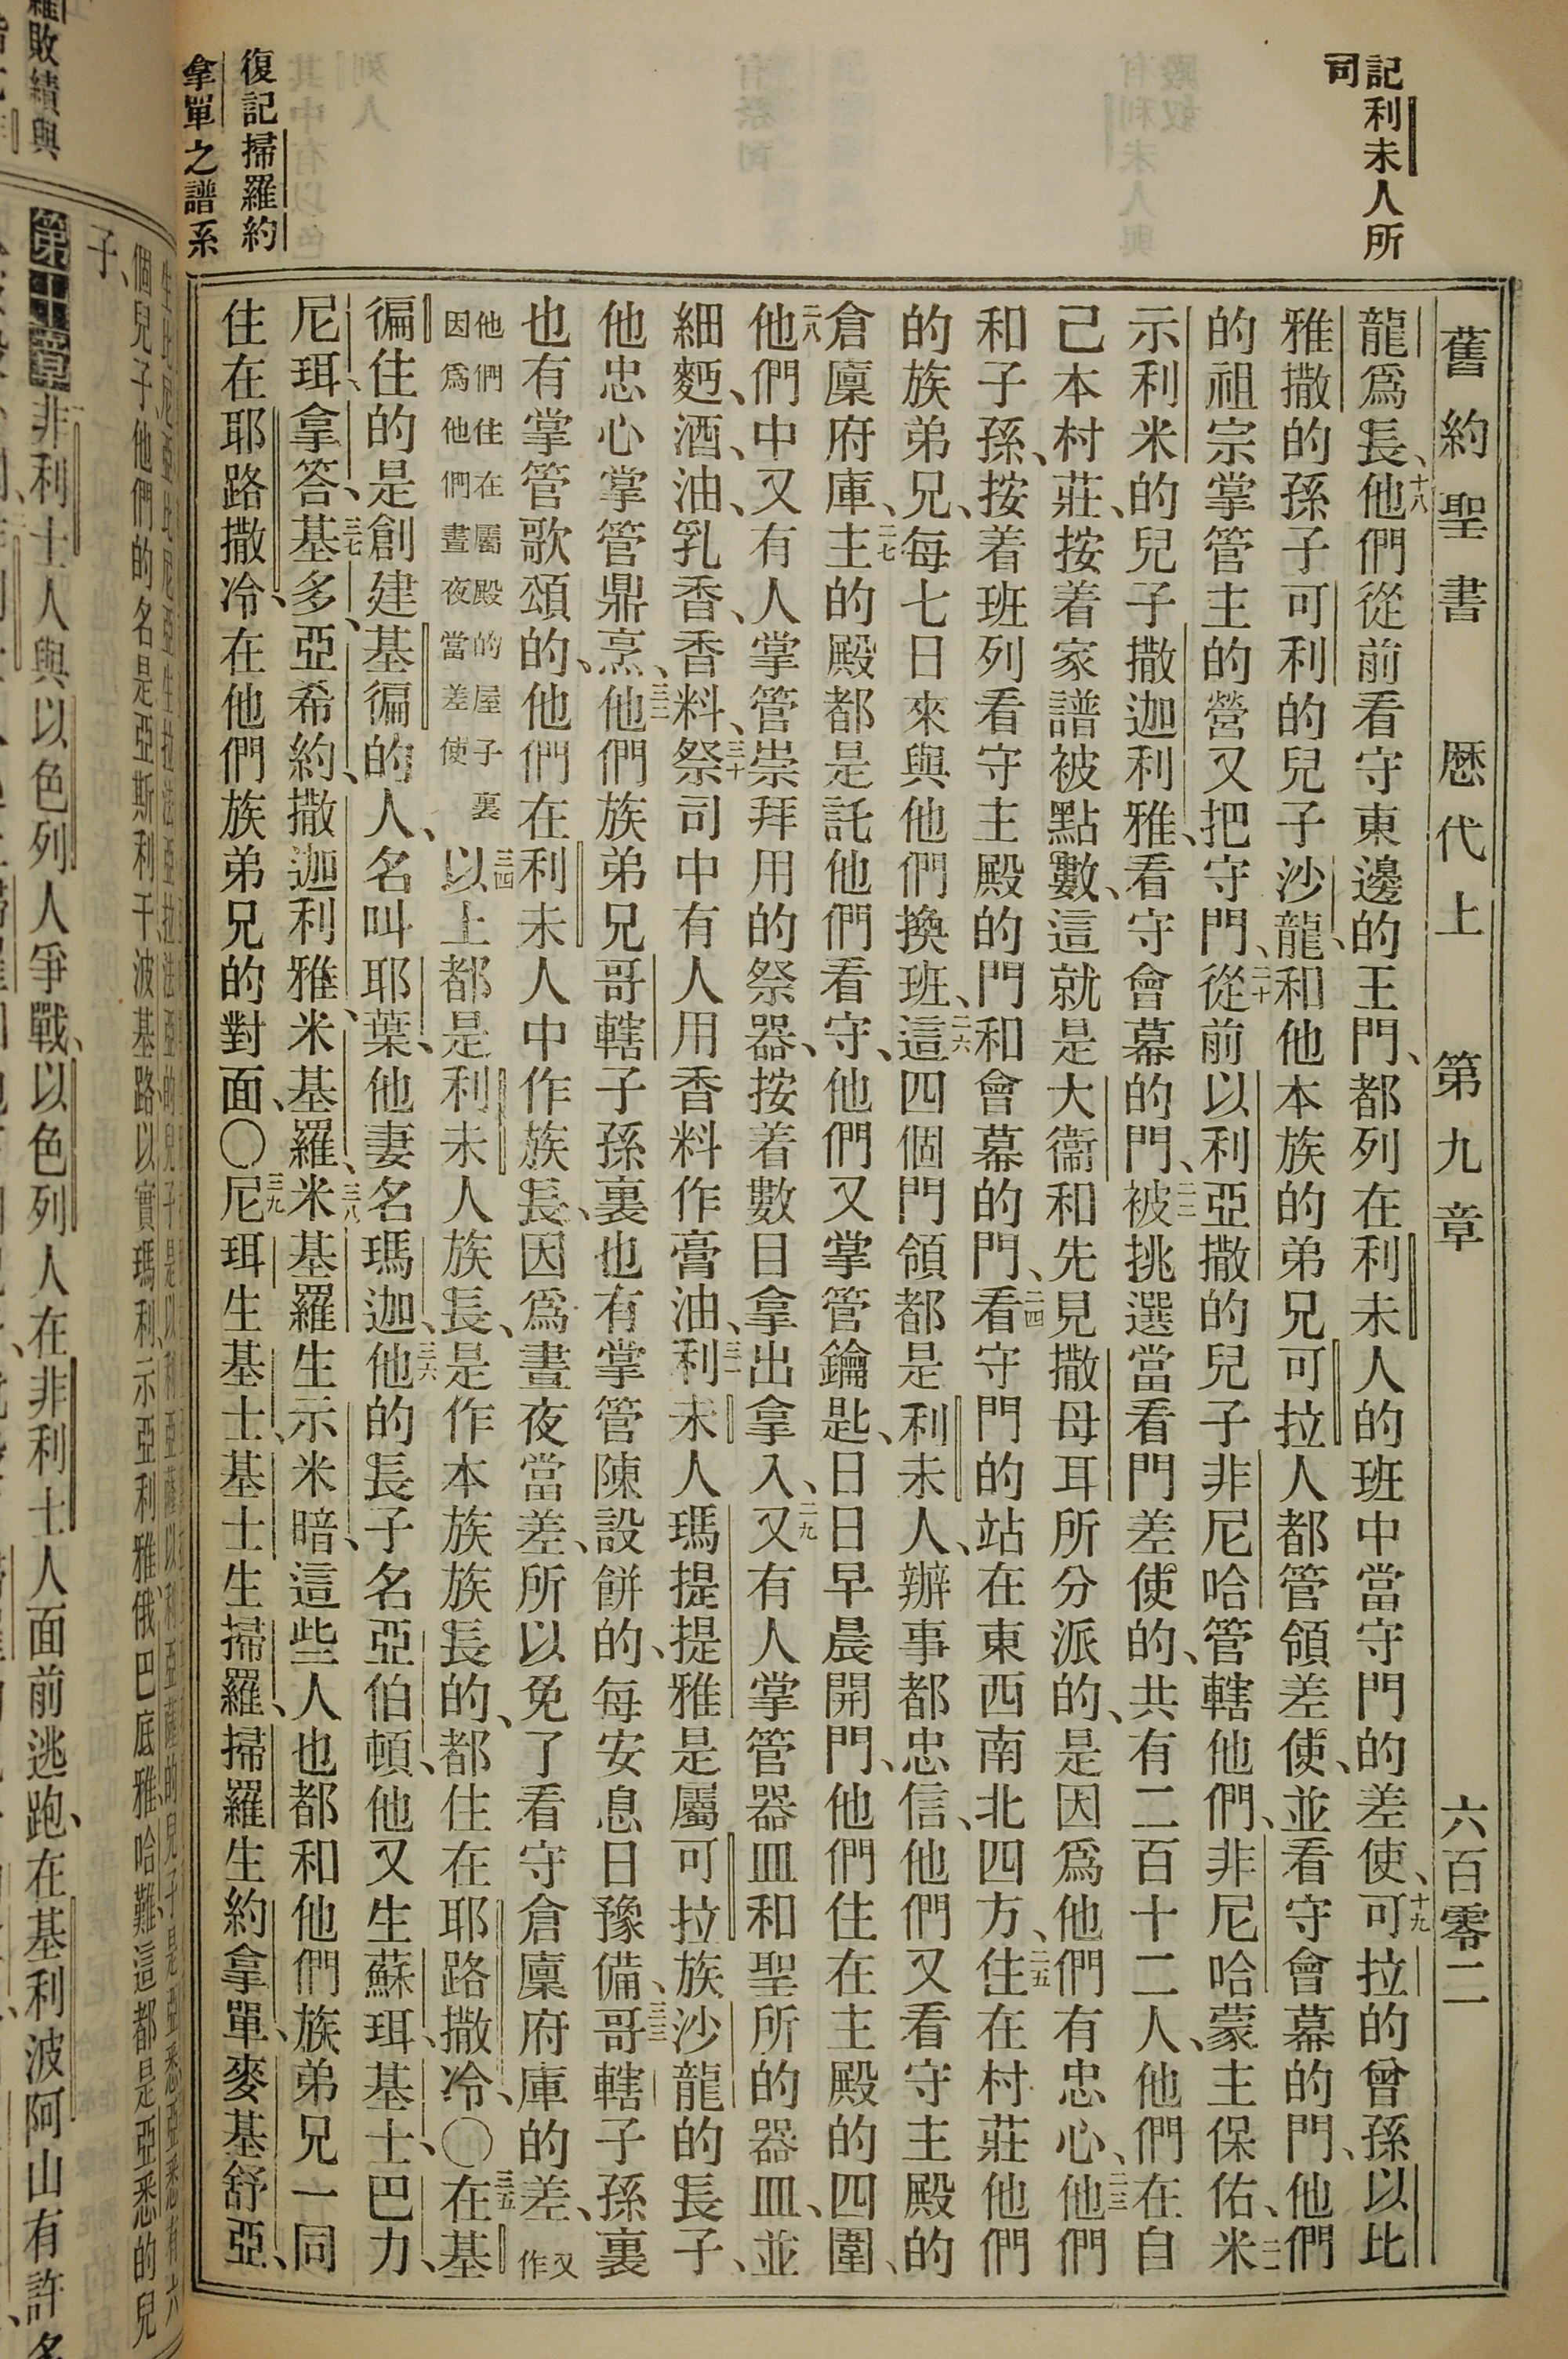 記利未人所
司
舊約聖書 歷代上 第九章 六百零二
龍爲長、十八他們從前看守東邊的王門、都列在利未人的班中當守門的差使、十九可拉的曾孫以比
雅撒的孫子可利的兒子沙龍、和他本族的弟兄可拉人都管領差使、並看守會幕的門、他們
的祖宗掌管主的營又把守門、二十從前以利亞撒的兒子非尼哈管轄他們、非尼哈蒙主保佑、二一米
示利米的兒子撒迦利雅、看守會幕的門、二二被挑選當看門差使的、共有二百十二人、他們在自
己本村莊、按着家譜被點數、這就是大衞和先見撒母耳所分派的、是因爲他們有忠心、二三他們
和子孫、按着班列看守主殿的門和會幕的門、二四看守門的站在東西南北四方、二五住在村莊他們
的族弟兄、每七日來與他們換班、二六這四個門領都是利未人、辦事都忠信、他們又看守主殿的
倉廩府庫、二七主的殿都是託他們看守、他們又掌管鑰匙、日日早晨開門、他們住在主殿的四圍、
二八他們中又有人掌管崇拜用的祭器、按着數目拿出拿入、二九又有人掌管器皿和聖所的器皿、並
細麪、酒、油、乳香、香料、三十祭司中有人用香料作膏油、三一利未人瑪提提雅是屬可拉族沙龍的長子、
他忠心掌管鼎烹、三二他們族弟兄哥轄子孫裏也有掌管陳設餅的、每安息日豫備、三三哥轄子孫裏
也有掌管歌頌的、他們在利未人中作族長、因爲晝夜當差、所以免了看守倉廩府庫的差、又作
他們住在屬殿的屋子裏
因爲他們晝夜當差使
三四以上都是利未人族長、是作本族族長的、都住在耶路撒冷、〇三五在基
徧住的是創建基徧的人、名叫耶葉、他妻名瑪迦、三六他的長子名亞伯頓、他又生蘇珥、基士、巴力、
尼珥、拿答、三七基多、亞希約、撒迦利雅、米基羅、三八米基羅生示米暗、這些人也都和他們族弟兄一同
住在耶路撒冷、在他們族弟兄的對面、〇三九尼珥生基士、基士生掃羅、掃羅生約拿單、麥基舒亞、
復記掃羅約
拿單之譜系
個兒子他們的名是亞斯利干波基路以實瑪利、示亞利雅、俄巴底雅、哈難、這都是亞悉的兒
子、
第十章 非利士人與以色列人爭戰、以色列人在非利士人面前逃跑、在基利波阿山有許多
敗績與